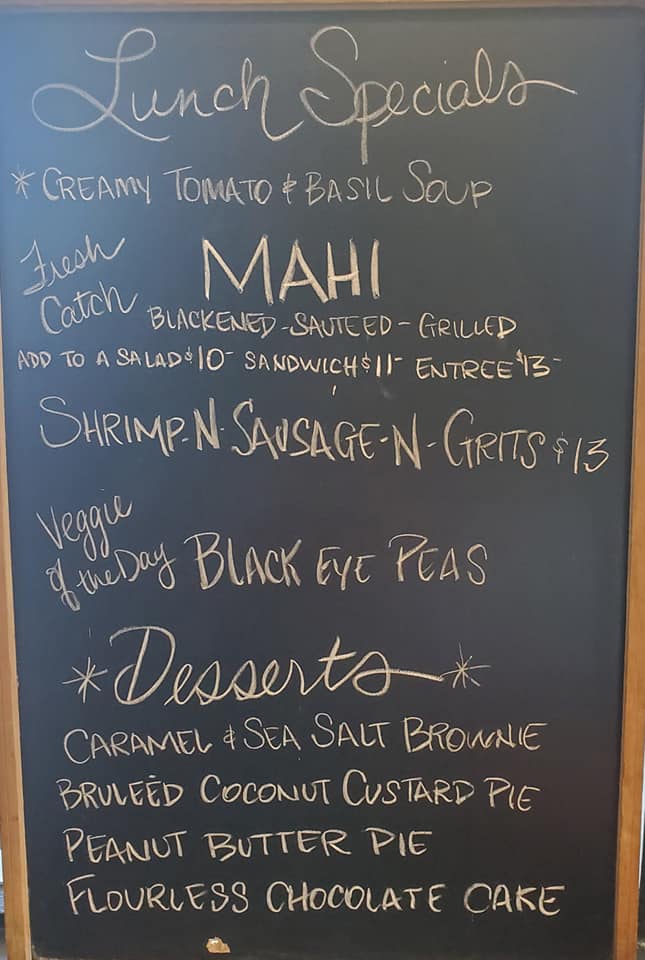 Lunch Specials
* CREAMY TOMATO & BASIL SOUP
Fresh
Catch
MAHI
BLACKENED - SAUTEED - GRILLED
ADD TO A SALAD $10- SANDWICH $11- ENTREE $13-
SHRIMP-N-SAUSAGE-N-GRITS $13
Veggie
of the Day BLACK EYE PEAS
*Desserts*
CARAMEL & SEA SALT BROWNIE
BRULEÉD COCONUT CUSTARD PIE
PEANUT BUTTER PIE
FLOURLESS CHOCOLATE CAKE